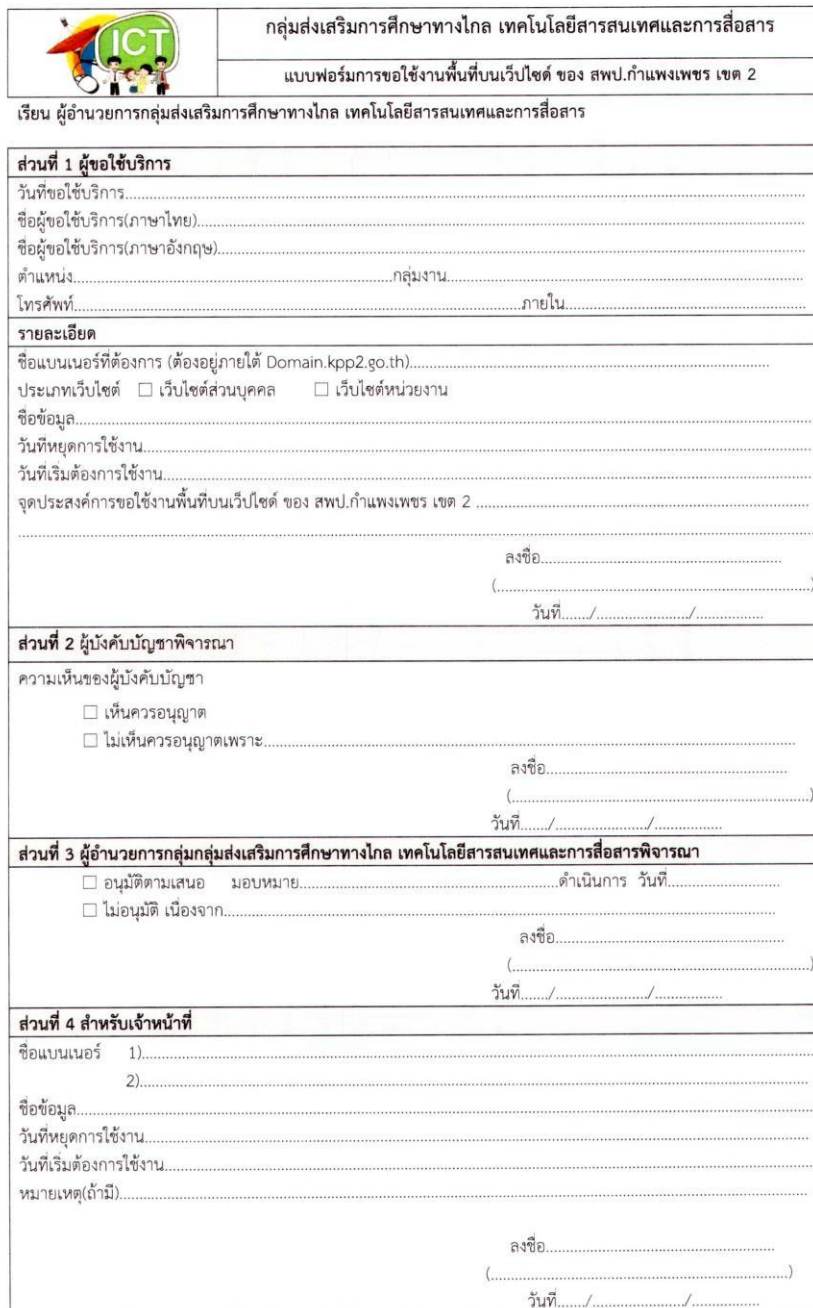 ICT
กลุ่มส่งเสริมการศึกษาทางไกล เทคโนโลยีสารสนเทศและการสื่อสาร
แบบฟอร์มการขอใช้งานพื้นที่บนเว็ปไซด์ ของ สพป.กำแพงเพชร เขต 2
เรียน ผู้อำนวยการกลุ่มส่งเสริมการศึกษาทางไกล เทคโนโลยีสารสนเทศและการสื่อสาร
ส่วนที่ 1 ผู้ขอใช้บริการ
วันที่ขอใช้บริการ....................
ชื่อผู้ขอใช้บริการ(ภาษาไทย)....................
ชื่อผู้ขอใช้บริการ(ภาษาอังกฤษ)....................
ตำแหน่ง....................กลุ่มงาน....................
โทรศัพท์....................ภายใน....................
รายละเอียด
ชื่อแบนเนอร์ที่ต้องการ (ต้องอยู่ภายใต้ Domain.kpp2.go.th)....................
ประเภทเว็บไซต์ □ เว็บไซต์ส่วนบุคคล □ เว็บไซต์หน่วยงาน
ชื่อข้อมูล....................
วันที่หยุดการใช้งาน....................
วันที่เริ่มต้องการใช้งาน....................
จุดประสงค์การขอใช้งานพื้นที่บนเว็ปไซด์ ของ สพป.กำแพงเพชร เขต 2 ....................
....................
ลงชื่อ....................
(....................)
วันที่......./......................./.................
ส่วนที่ 2 ผู้บังคับบัญชาพิจารณา
ความเห็นของผู้บังคับบัญชา
□ เห็นควรอนุญาต
□ ไม่เห็นควรอนุญาตเพราะ....................
ลงชื่อ....................
(....................)
วันที่......./......................./.................
ส่วนที่ 3 ผู้อำนวยการกลุ่มกลุ่มส่งเสริมการศึกษาทางไกล เทคโนโลยีสารสนเทศและการสื่อสารพิจารณา
□ อนุมัติตามเสนอ มอบหมาย....................ดำเนินการ วันที่....................
□ ไม่อนุมัติ เนื่องจาก....................
ลงชื่อ....................
(....................)
วันที่......./......................./.................
ส่วนที่ 4 สำหรับเจ้าหน้าที่
ชื่อแบนเนอร์ 1)....................
2)....................
ชื่อข้อมูล....................
วันที่หยุดการใช้งาน....................
วันที่เริ่มต้องการใช้งาน....................
หมายเหตุ(ถ้ามี)....................
ลงชื่อ....................
(....................)
วันที่......./......................./.................